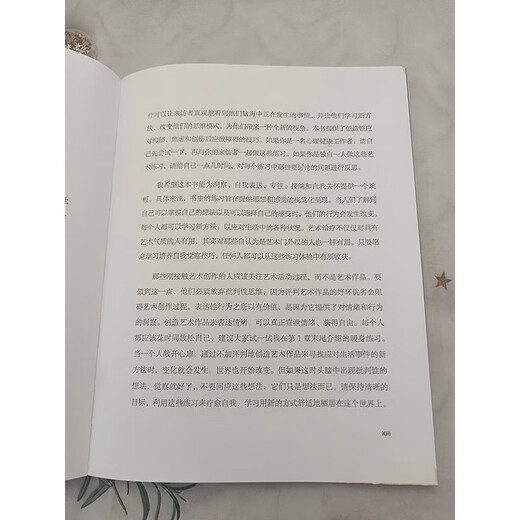 疗可以让来访者直观地看到他们脑海中正在发生的事情，并让他们学习新方
法，改变他们的思维模式，为他们带来一种全新的视角。本书提供了创造性应
对抑郁、焦虑和创伤后应激障碍的技巧。如果你是一名心理健康工作者，请自
己先尝试一下，再与你的来访者一起做这些练习。如果你是独自一人做这些艺
术练习，请给自己一点儿时间，对每个练习中那些要讨论的问题进行反思。
我希望这本书能为洞察、自我表达、专注、接纳和自我关怀提供一个跳
板。具体来说，书中的练习旨在提供思想和感觉的视觉化呈现。当人们了解到
自己可以掌控自己的想法以及可以选择自己的感受时，他们的行为会发生改变。
每个人都可以学习新方法，以应对生活中的各种状况。艺术治疗不仅仅对具有
艺术气质的人有用，其实对那些自认为是艺术门外汉的人也一样有用。只要愿
意学习培养自我觉察技巧，任何人都可以从这些练习体验中有所收获。
那些刚接触艺术创作的人应该关注艺术活动过程，而不是艺术作品。要
做到这一点，他们必须放弃批判性思维，因为评判艺术作品的好坏优劣会阻
碍艺术创作过程。表达性行为之所以有价值，是因为它提供了对情绪和行为
的洞察。创造艺术作品来表达情绪，可以真正宣泄情绪、获得自由。每个人
都应该花时间放松自己，建议大家试一试我在第 1 章末尾介绍的暖身练习。
当一个人敞开心扉，通过不加评判地创造艺术作品来寻找应对生活事件的新
方法时，变化就会发生，世界也开始改变。但如果这时头脑中出现批判性的
想法，觉察就好了，不要回应这些想法，它们只是想法而已。请保持清晰的
目标，利用这些练习来疗愈自我，学习用新的方式舒适地栖居在这个世界上。
XIII